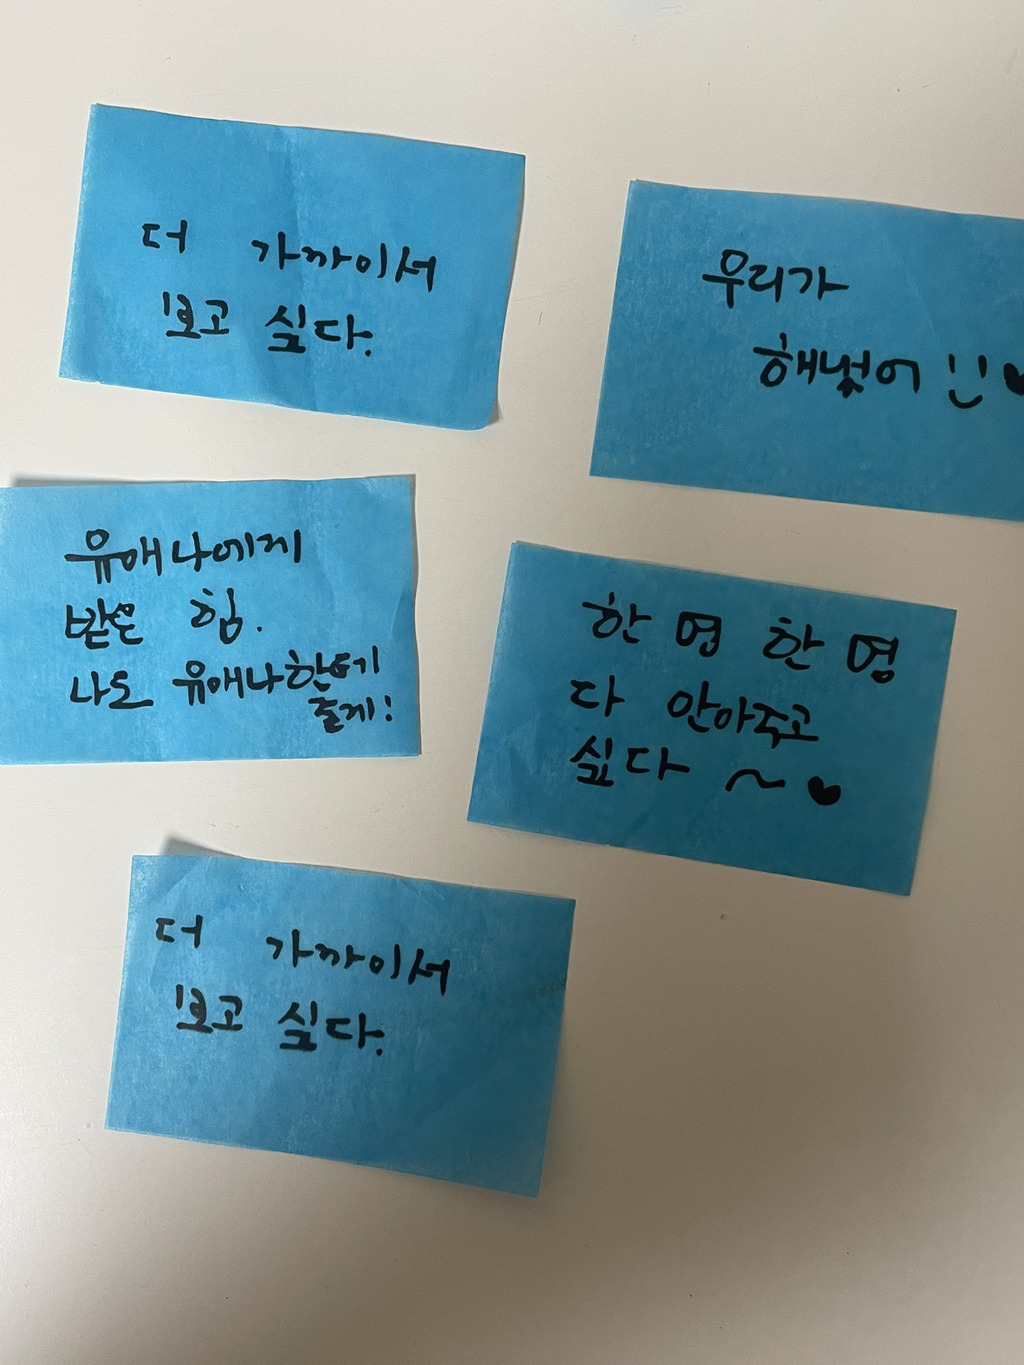 더 가까이서
보고 싶다.
우리가
해냈어 !!
유애나에게
받은 힘.
나도 유애나한테
줄게!
한 명 한 명
다 안아주고
싶다 ~ ♥
더 가까이서
보고 싶다.